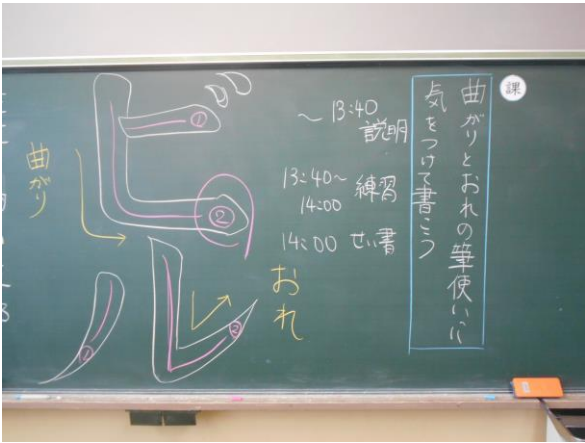 課
曲がりとおれの筆使いに
気をつけて書こう
～13:40
説明
13:40～
14:00
練習
14:00 せい書
ビル
①
②
曲がり
おれ
①
②